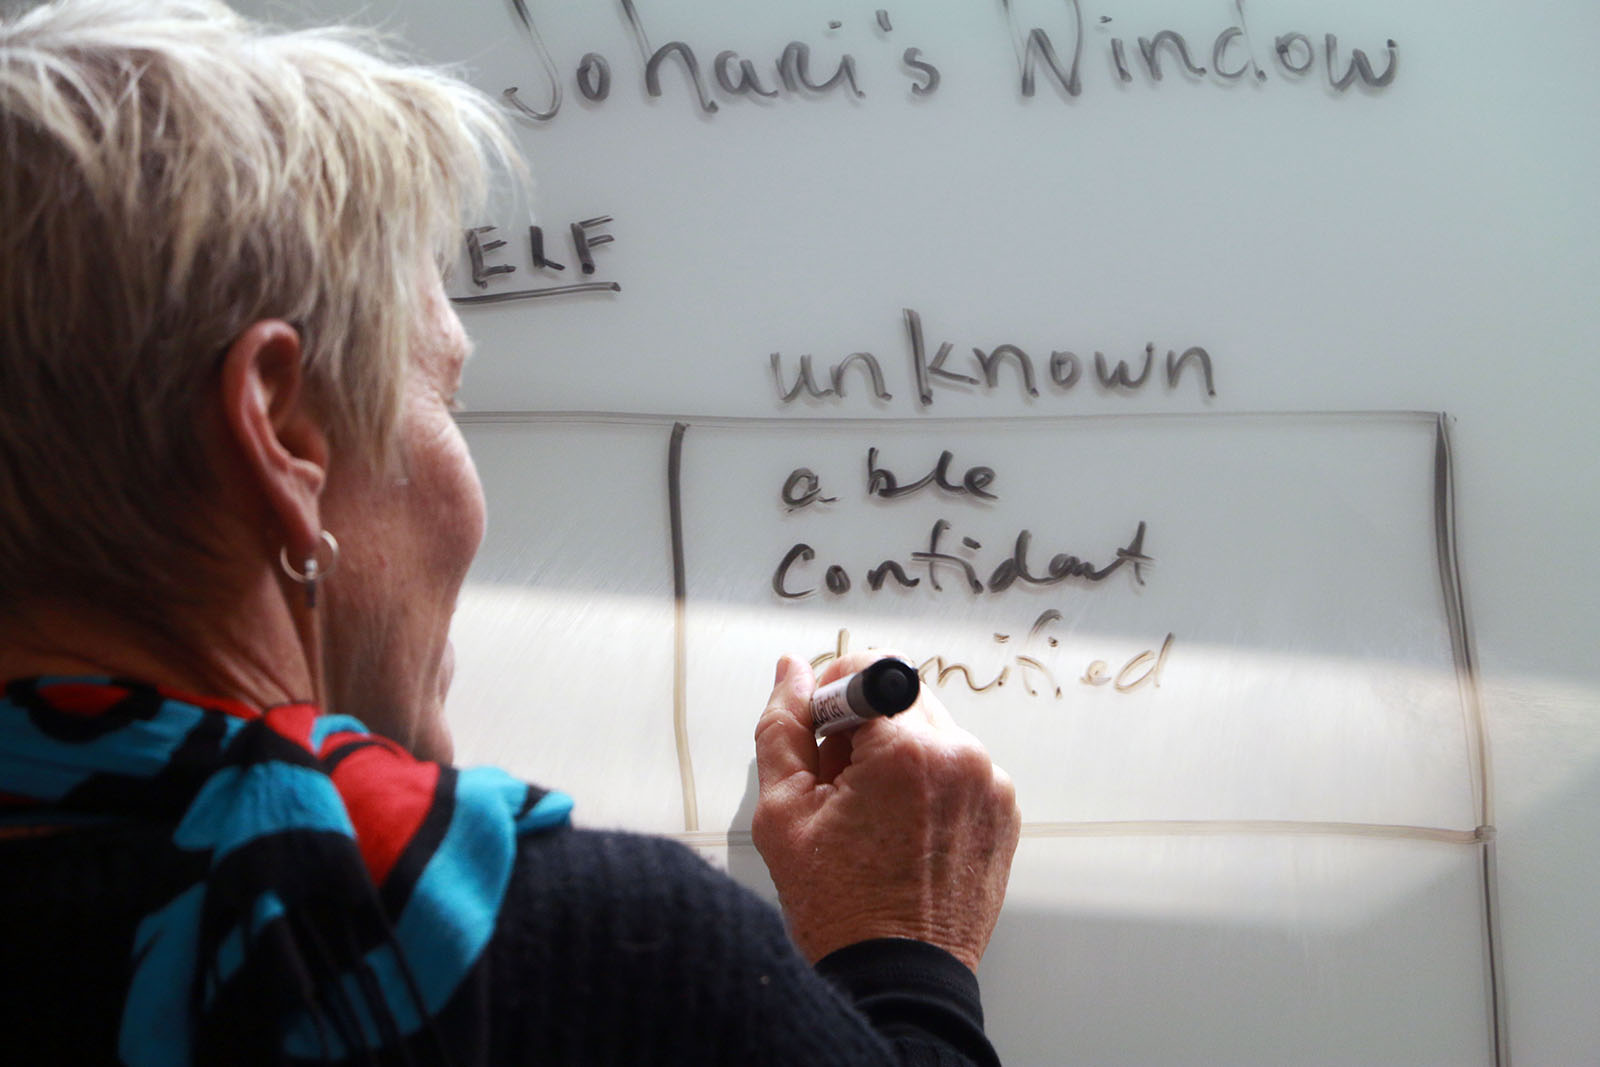 Johari's Window
ELF
unknown
able
Confident
dignified